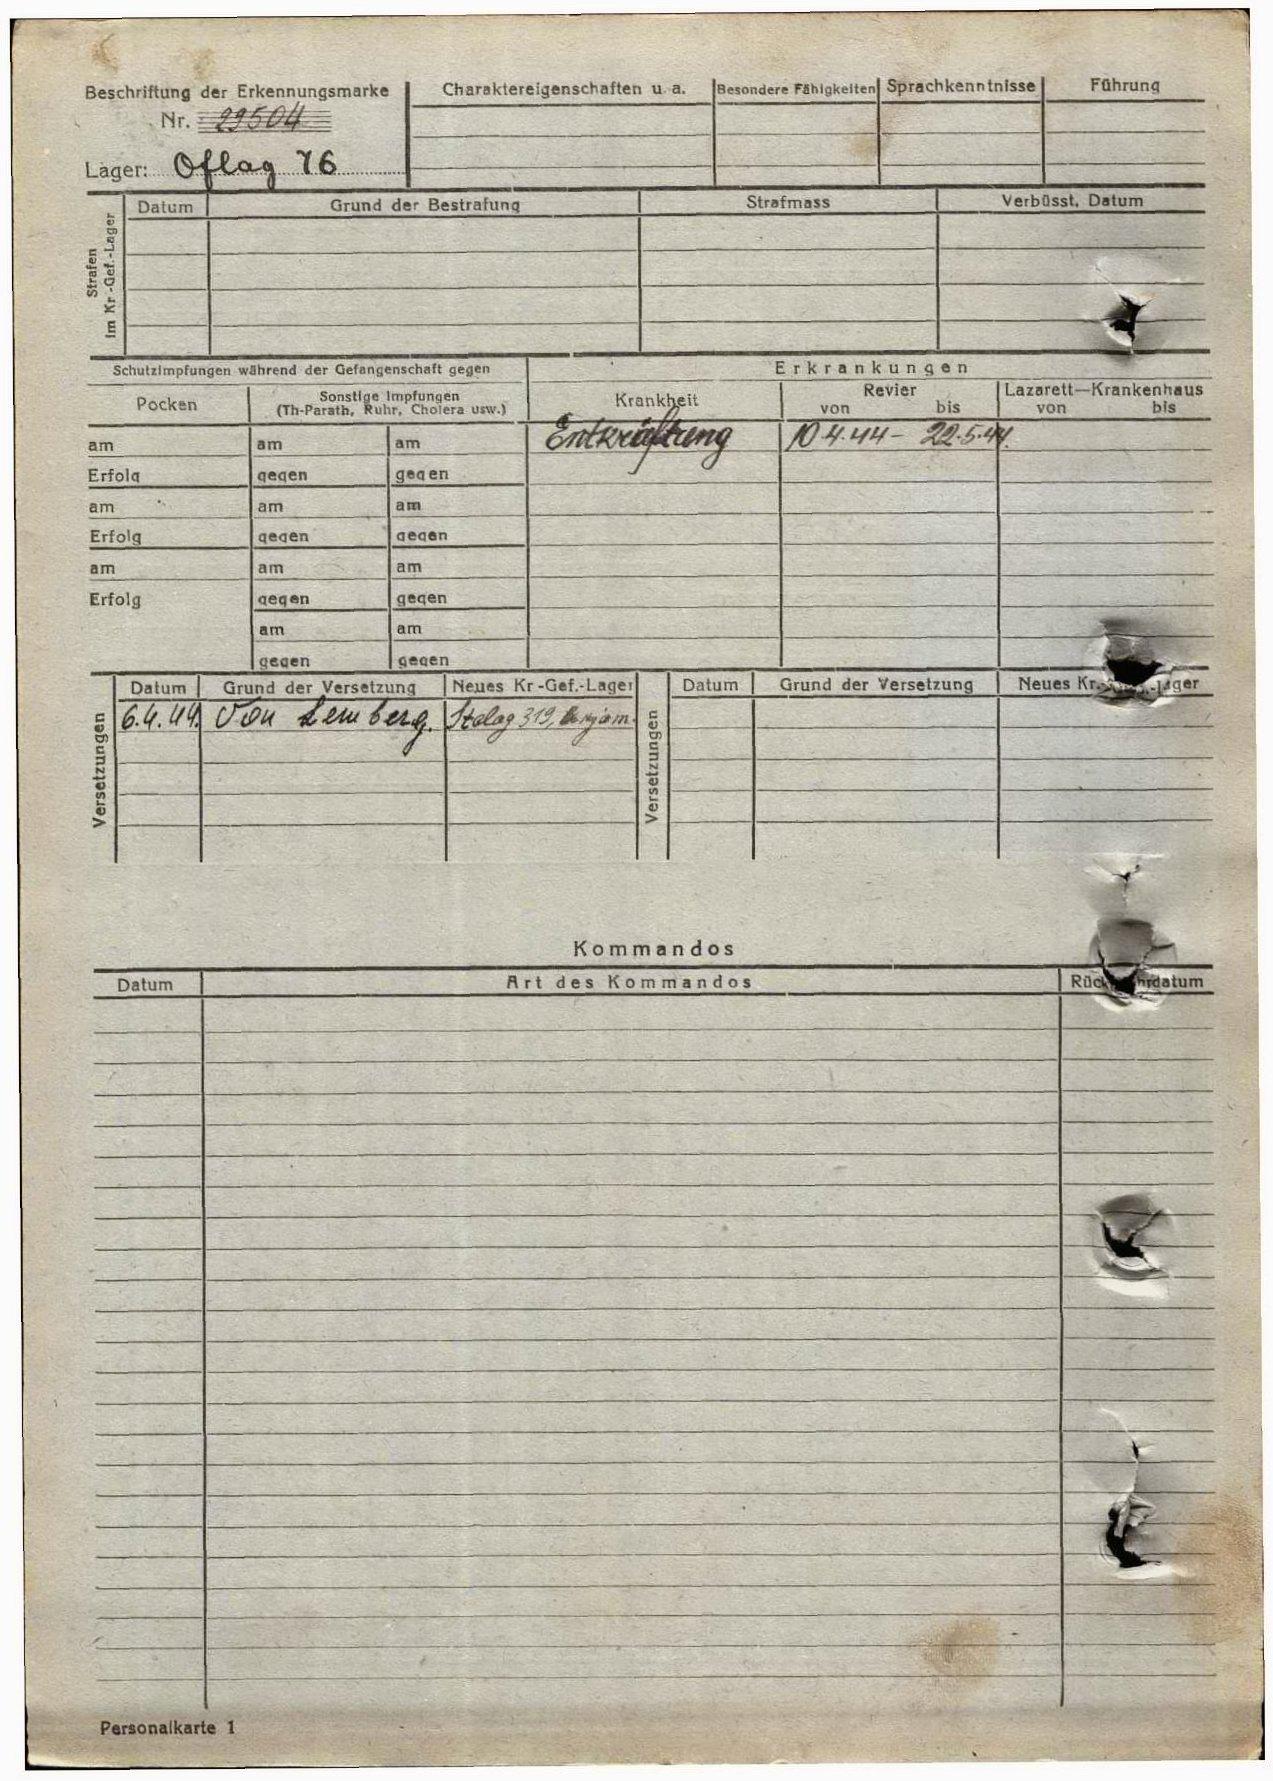 Beschriftung der Erkennungsmarke
Nr. 29504
Lager: Oflag 76
Charaktereigenschaften u. a.
Besondere Fähigkeiten
Sprachkenntnisse
Führung
Strafen
im Kr.-Gef.-Lager
Datum
Grund der Bestrafung
Strafmass
Verbüsst, Datum
Schutzimpfungen während der Gefangenschaft gegen
Erkrankungen
Pocken
Sonstige Impfungen
(Th-Parath, Ruhr, Cholera usw.)
Krankheit
Revier
von bis
Lazarett—Krankenhaus
von bis
am am am
Entkräftung 10.4.44 - 22.5.44.
Erfolg gegen gegen
am am am
Erfolg gegen gegen
am am am
Erfolg gegen gegen
am am
gegen gegen
Versetzungen
Datum Grund der Versetzung Neues Kr.-Gef.-Lager
6.4.44. Von Lemberg. Stalag 319,
Versetzungen
Datum Grund der Versetzung Neues Kr.
Kommandos
Datum Art des Kommandos
Personalkarte 1